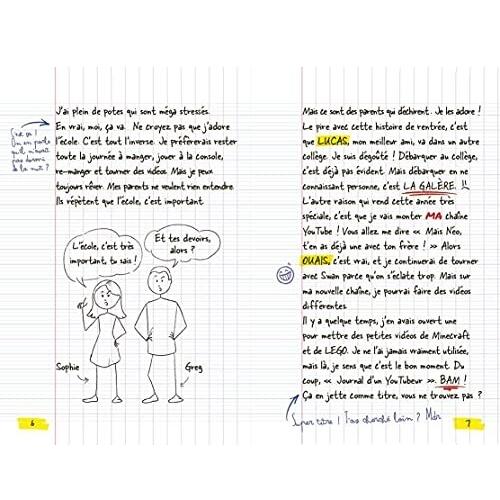 J'ai plein de potes qui sont méga stressés.
En vrai, moi, ça va. Ne croyez pas que j'adore
l'école. C'est tout l'inverse. Je préfèrerais rester
toute la journée à manger, jouer à la console,
re-manger et tourner des vidéos. Mais je peux
toujours rêver. Mes parents ne veulent rien entendre.
Ils répètent que l'école, c'est important.
L'école, c'est très
important, tu sais !
Et tes devoirs,
alors ?
Sophie
Greg
6
Mais ce sont des parents qui déchirent. Je les adore !
Le pire avec cette histoire de rentrée, c'est
que LUCAS, mon meilleur ami, va dans un autre
collège. Je suis dégoûté ! Débarquer au collège,
c'est déjà pas évident. Mais débarquer en ne
connaissant personne, c'est LA GALÈRE. !!
L'autre raison qui rend cette année très
spéciale, c'est que je vais monter MA chaîne
YouTube ! Vous allez me dire « Mais Néo,
t'en as déjà une avec ton frère ! » Alors
OUAIS, c'est vrai, et je continuerai de tourner
avec Swan parce qu'on s'éclate trop. Mais sur
ma nouvelle chaîne, je pourrai faire des vidéos
différentes.
Il y a quelque temps, j'en avais ouvert une
pour mettre des petites vidéos de Minecraft
et de LEGO. Je ne l'ai jamais vraiment utilisée,
mais là, je sens que c'est le bon moment. Du
coup, « Journal d'un YouTubeur ». BAM !
Ça en jette comme titre, vous ne trouvez pas ?
Super titre ! T'as cherché loin ? Mdr
7